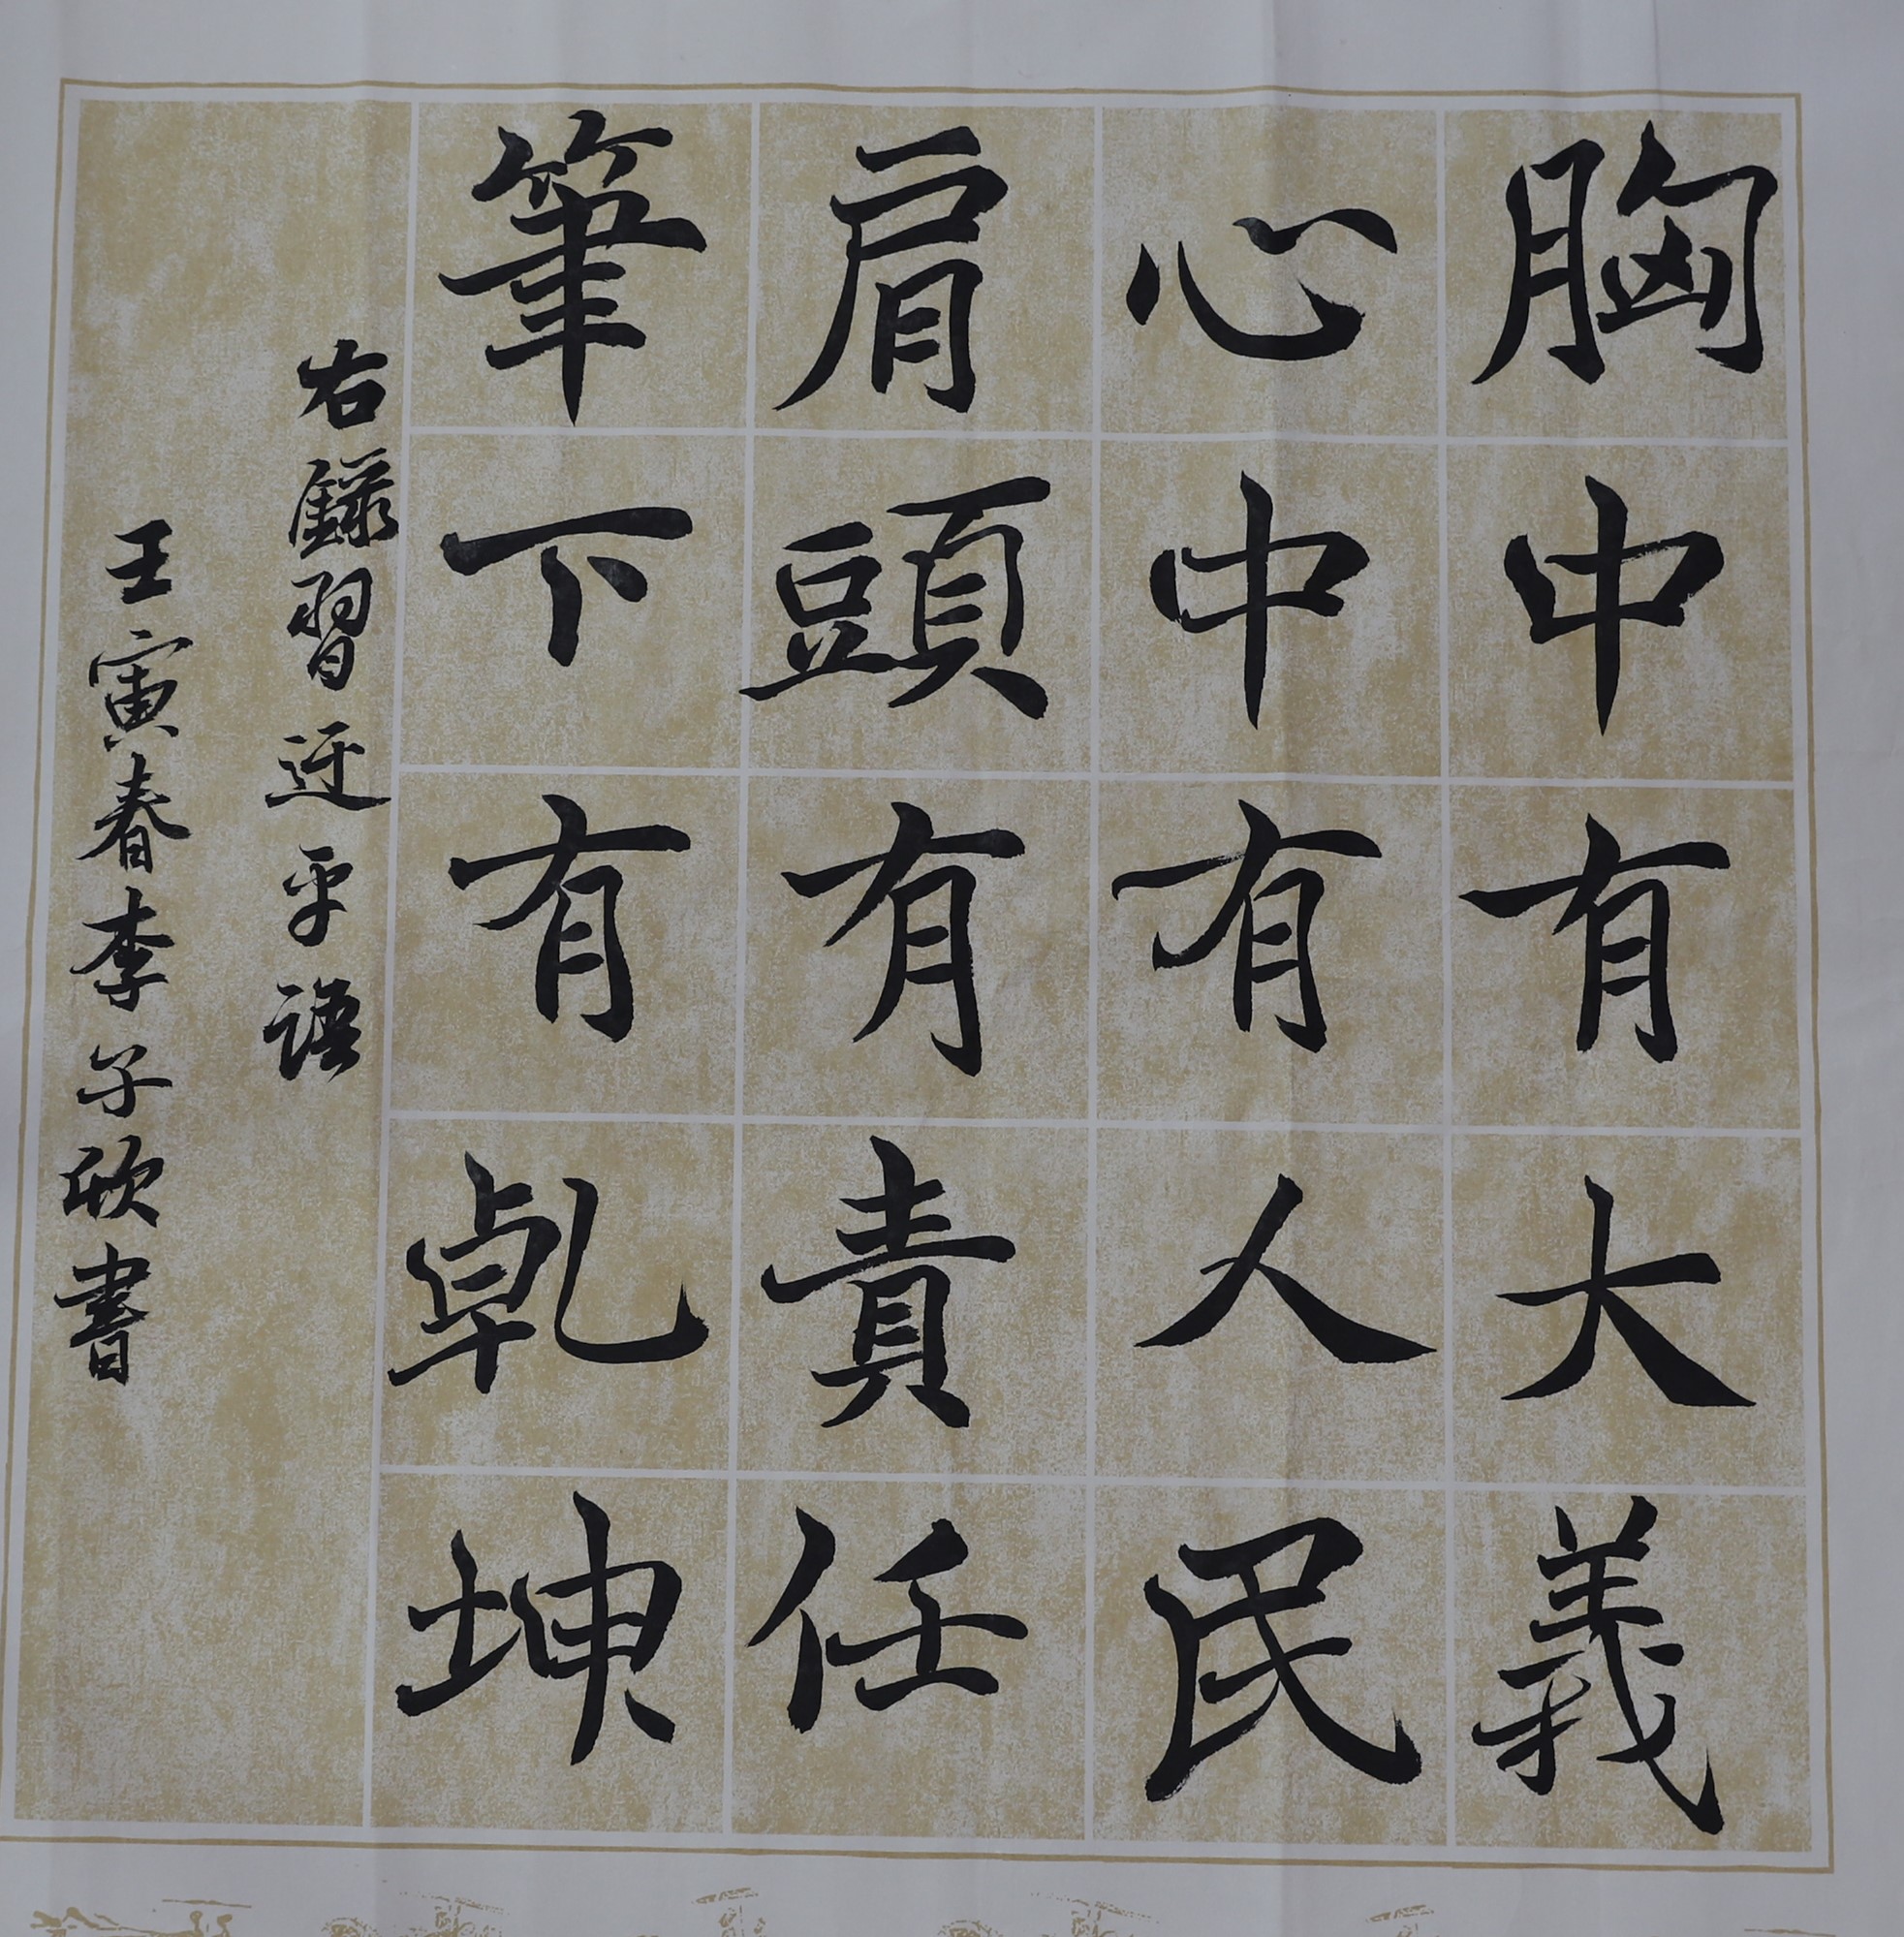 胸中有大義
心中有人民
肩頭有責任
筆下有乹坤
右録習近平語
壬寅春李子欣書